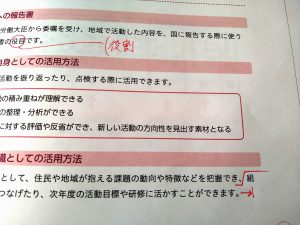 の報告書
労働大臣から委嘱を受け、地域で活動した内容を、国に報告する際に使う
書の役目です。
役割
自身としての活用方法
活動を振り返ったり、点検する際に活用できます。
の積み重ねが理解できる
の整理・分析ができる
に対する評価や反省ができ、新しい活動の方向性を見出す素材となる
織としての活用方法
として、住民や地域が抱える課題の動向や特徴などを把握でき、組
つなげたり、次年度の活動目標や研修に活かすことができます。